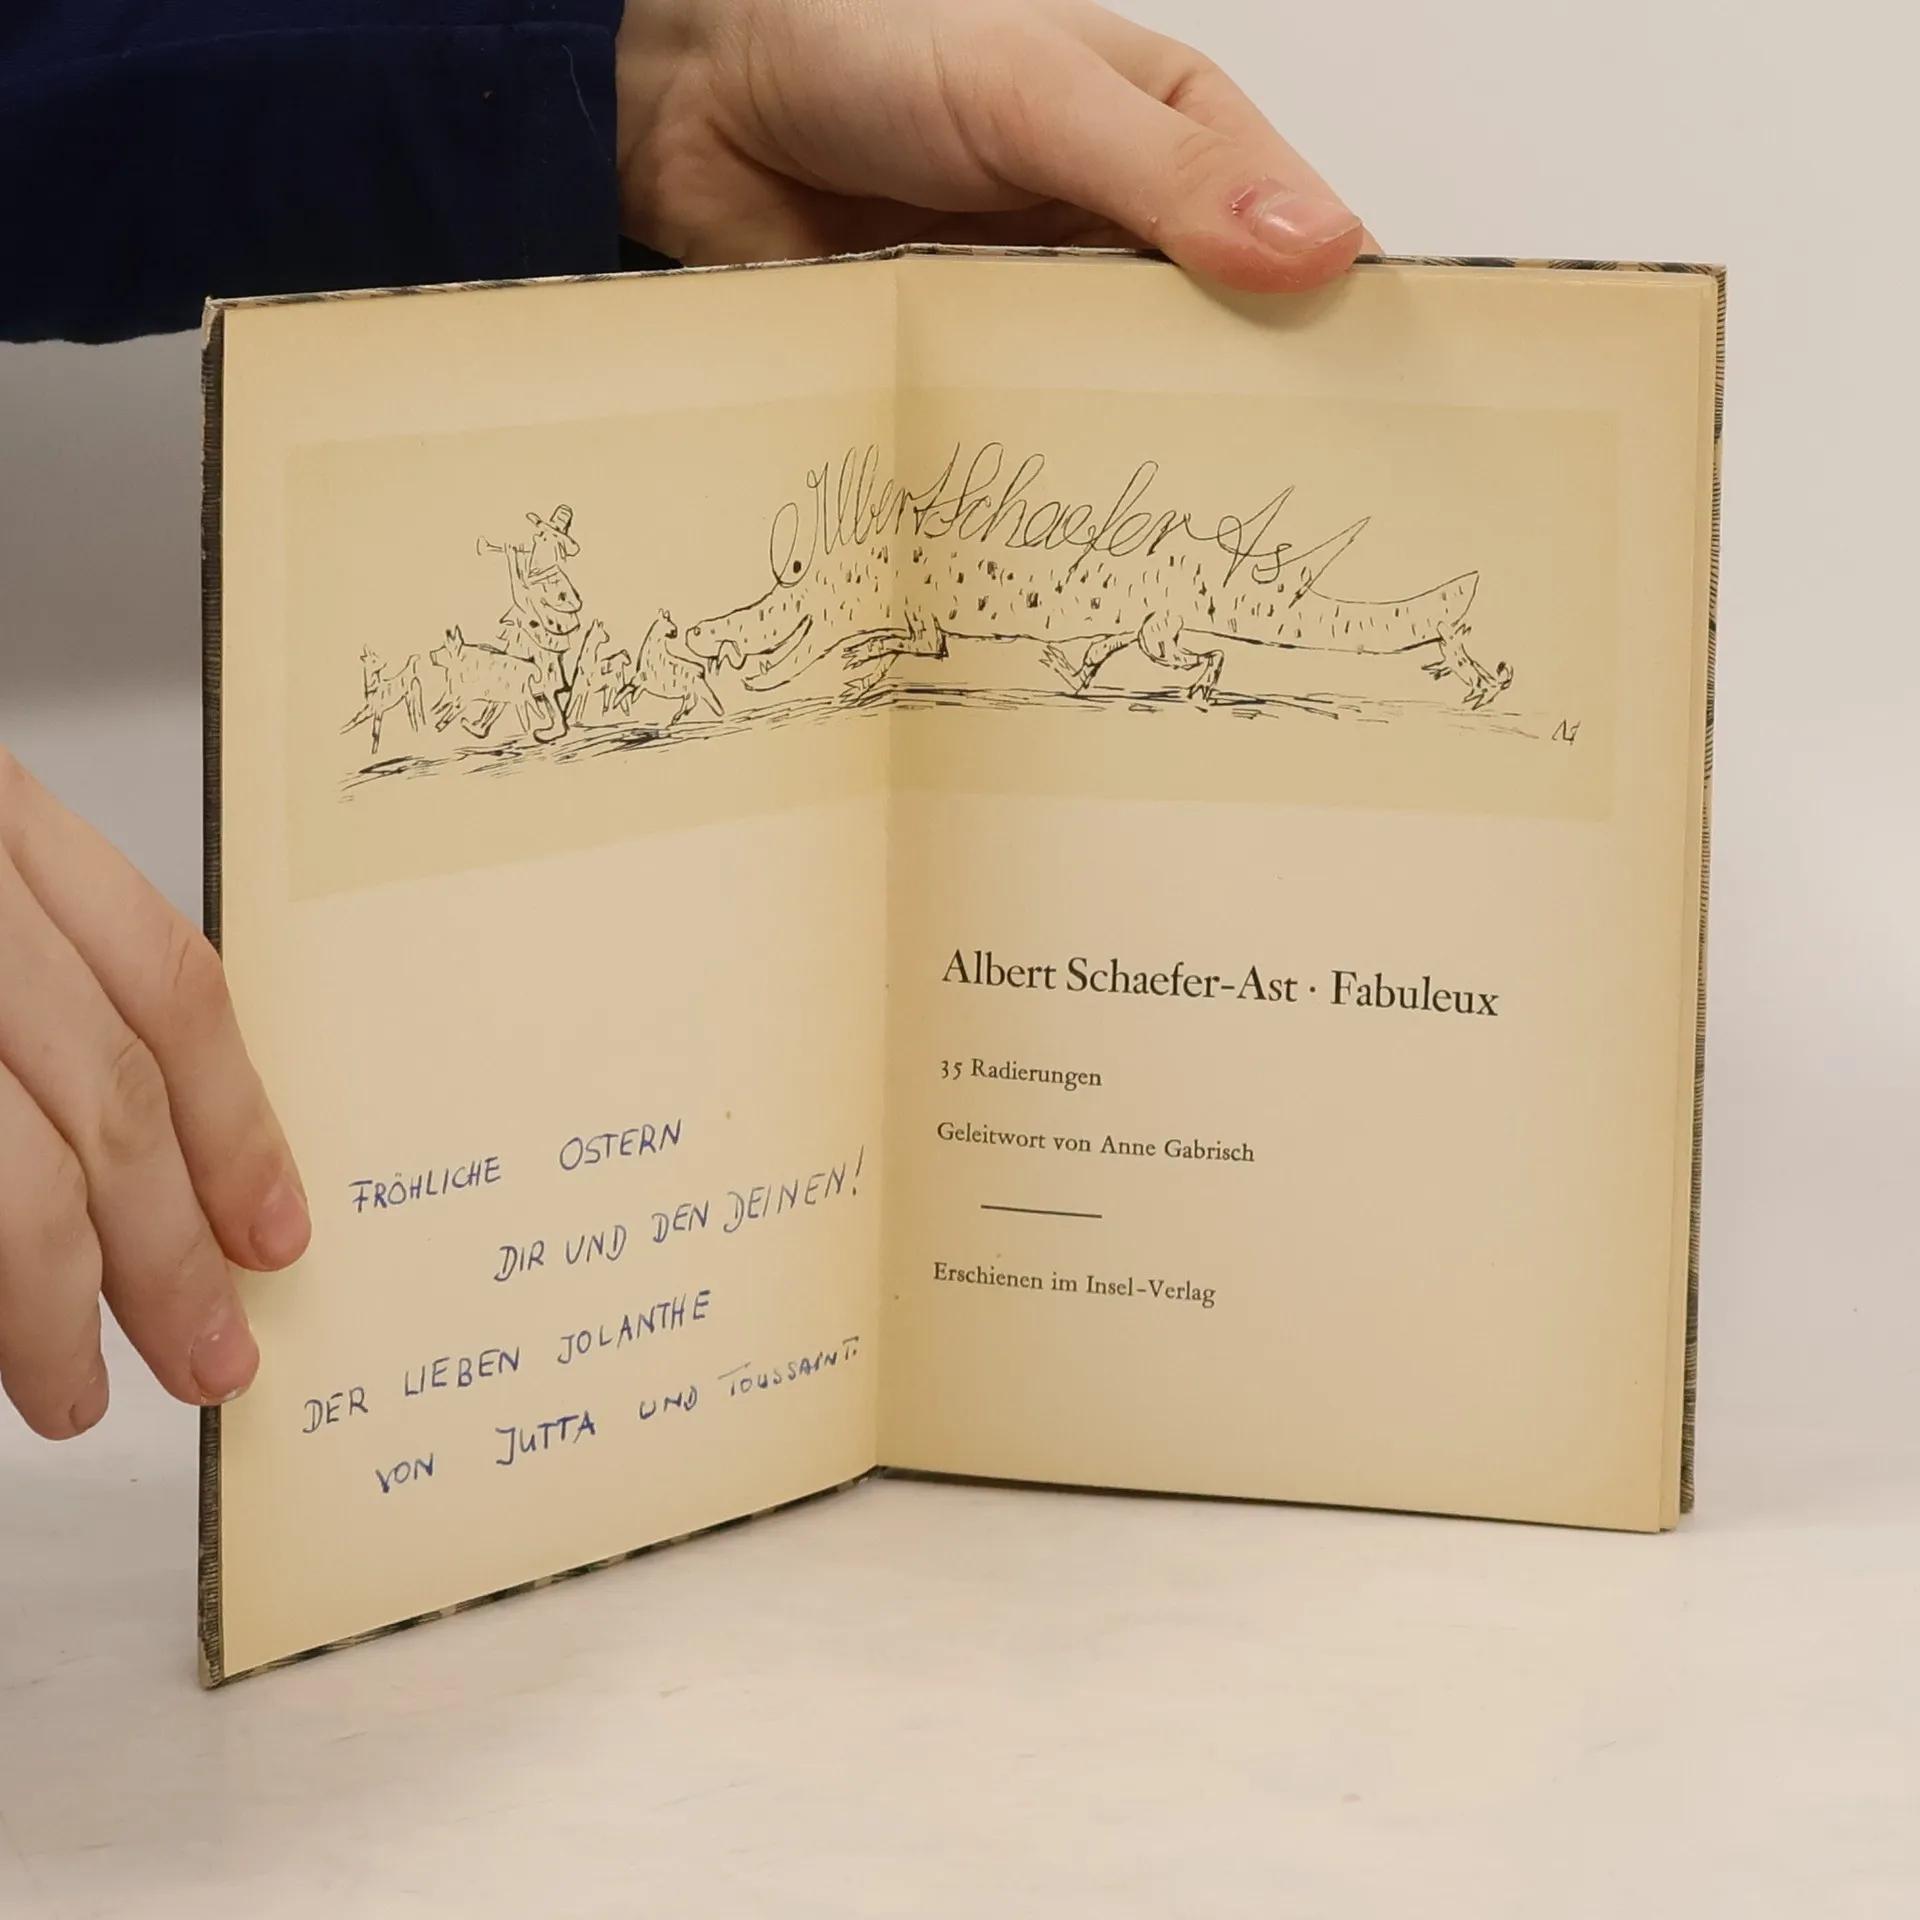 Albert Schaefer Ast
AS
FRÖHLICHE OSTERN
DIR UND DEN DEINEN!
DER LIEBEN JOLANTHE
VON JUTTA UND TOUSSAINT.
Albert Schaefer-Ast · Fabuleux
35 Radierungen
Geleitwort von Anne Gabrisch
Erschienen im Insel-Verlag